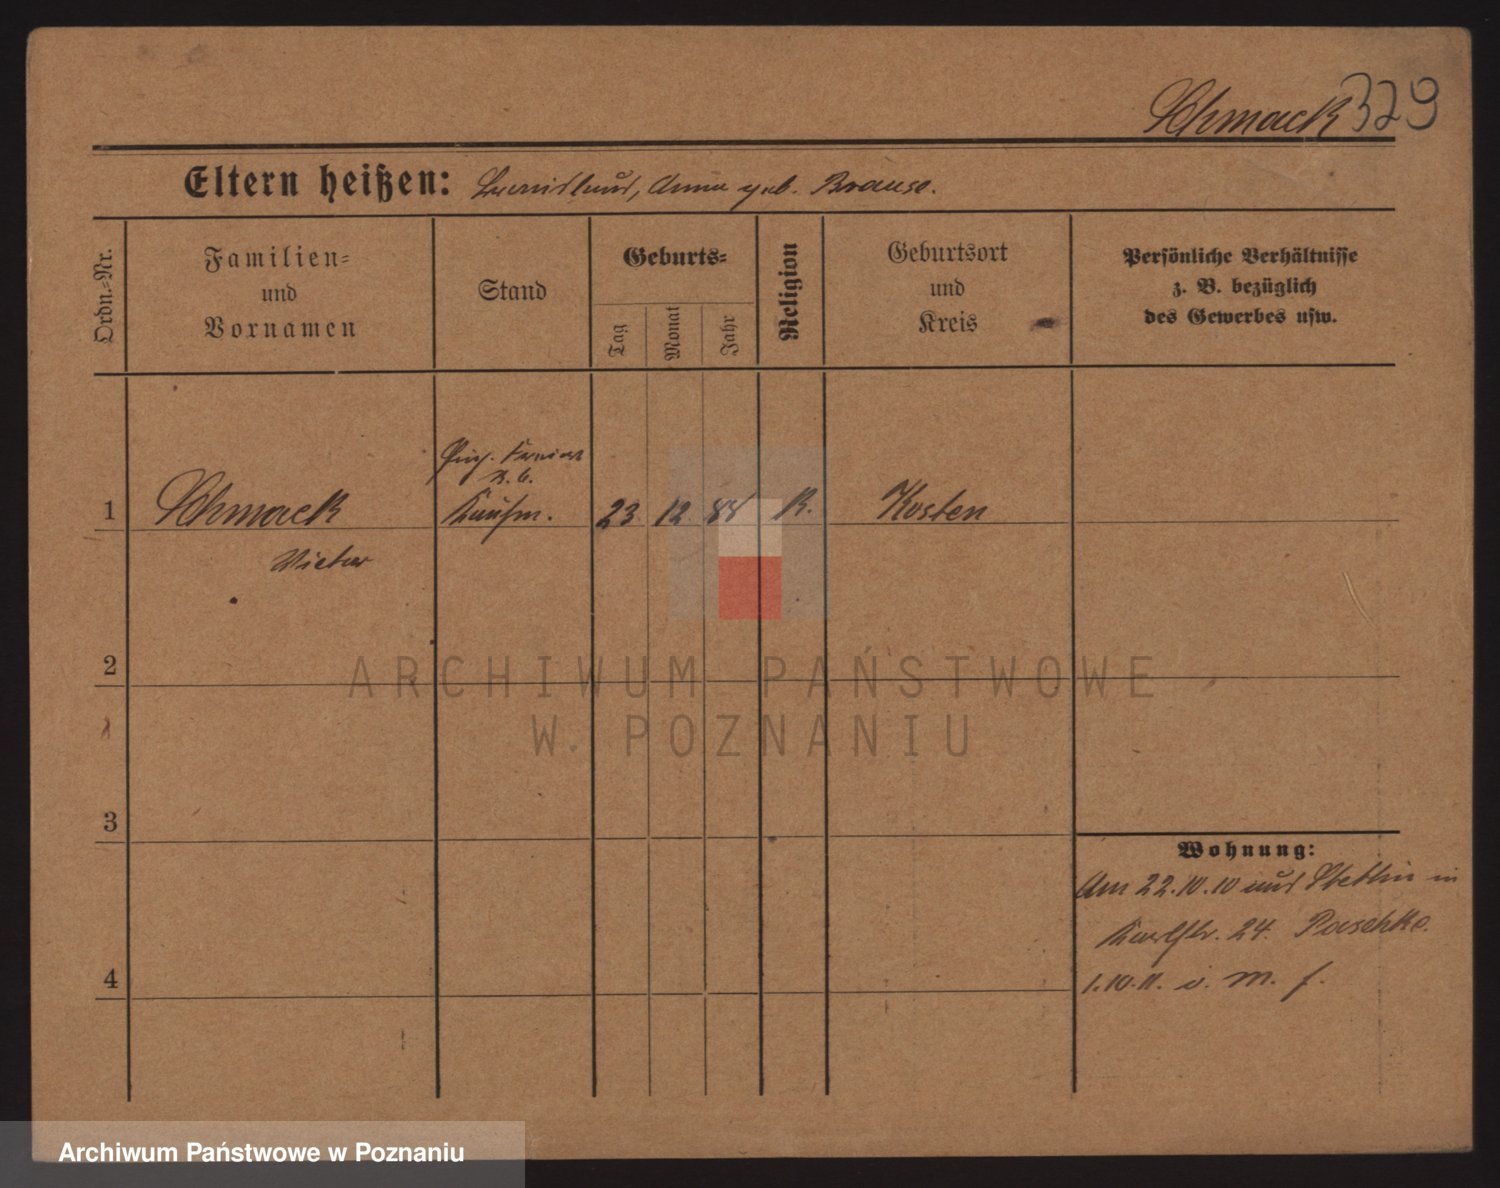 Schmack 329
Eltern heißen: Stanislaus, Anna geb. Brause.
Ordn.-Nr.
Familien-
und
Vornamen
Stand
Geburts-
Tag
Monat
Jahr
Religion
Geburtsort
und
Kreis
Persönliche Verhältnisse
z. B. bezüglich
des Gewerbes usw.
1 Schmack Kaufm. 23 12 88 K. Kosten
Victor
2
ARCHIWUM PAŃSTWOWE
W. POZNANIU
3
Wohnung:
Am 22.10.10 aus Stettin in
Karlstr. 24. Paschke.
4
1.10.11. v. M. f.
Archiwum Państwowe w Poznaniu